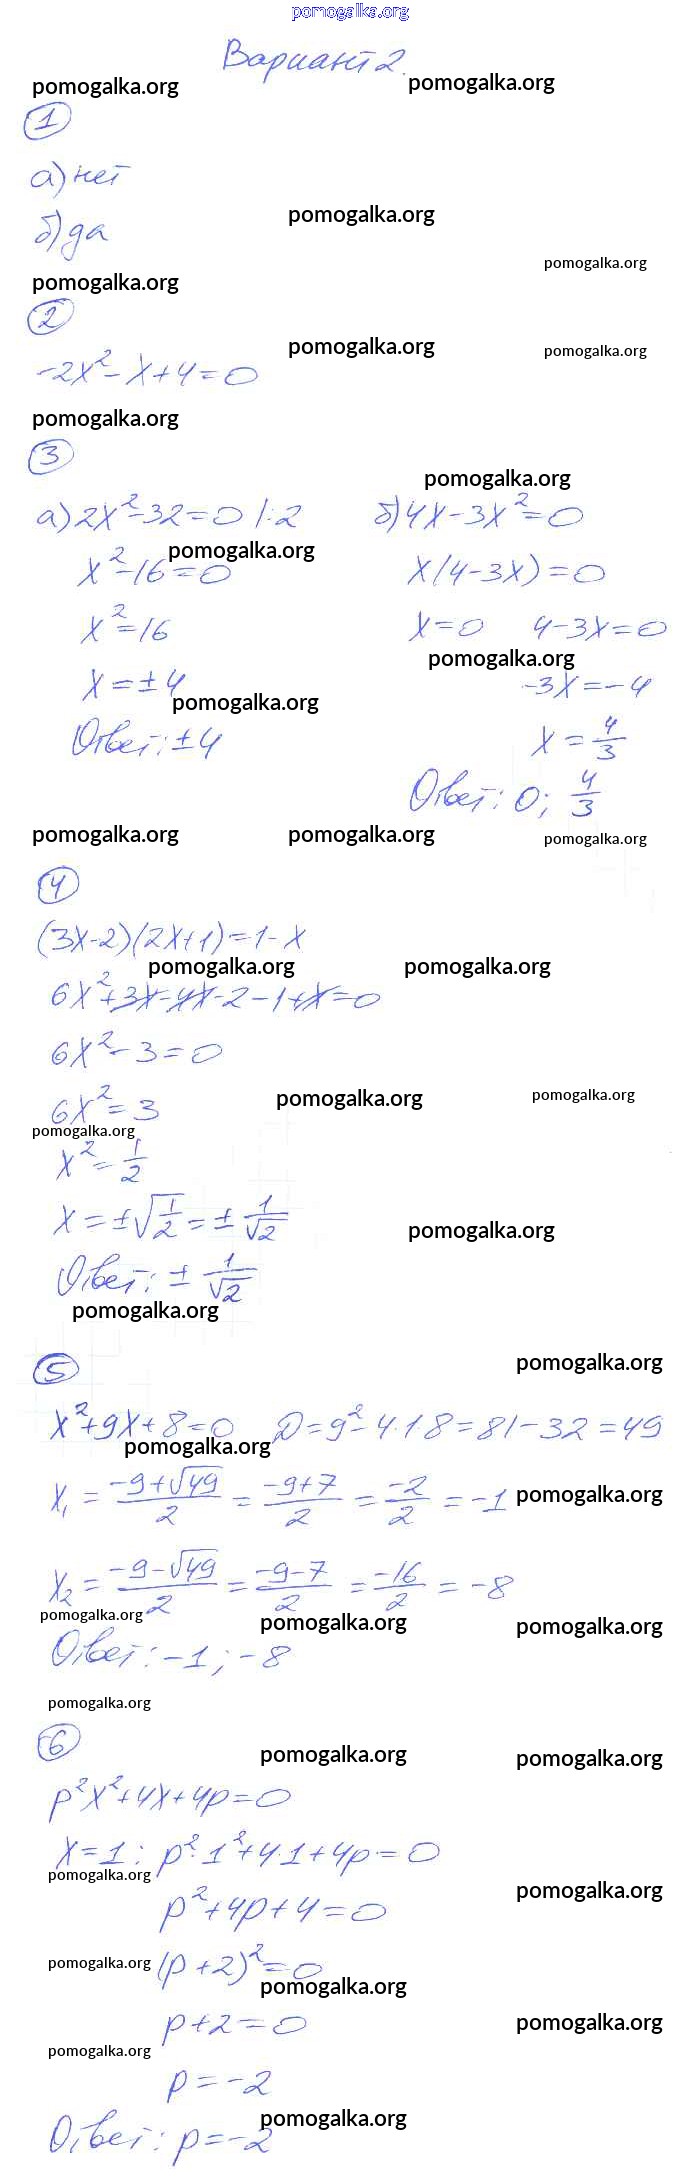 pomogalka.org
Вариант 2.
pomogalka.org pomogalka.org
1
а) нет
pomogalka.org
б) да
pomogalka.org
pomogalka.org
2
pomogalka.org pomogalka.org
-2x²-x+4=0
pomogalka.org
3
pomogalka.org
а) 2x²-32=0 |:2 б) 4x-3x²=0
pomogalka.org
x²-16=0 x(4-3x)=0
x²=16 x=0 4-3x=0
pomogalka.org
x=±4 -3x=-4
pomogalka.org
Ответ: ±4 x=4/3
Ответ: 0; 4/3
pomogalka.org pomogalka.org pomogalka.org
4
(3x-2)(2x+1)=1-x
pomogalka.org pomogalka.org
6x²+3x-4x-2-1+x=0
6x²-3=0
pomogalka.org pomogalka.org
6x²=3
pomogalka.org
x²=1/2
x=±√1/2=±1/√2
pomogalka.org
Ответ: ±1/√2
pomogalka.org
5
pomogalka.org
x²+9x+8=0 D=9²-4·1·8=81-32=49
pomogalka.org
x₁=(-9+√49)/2=(-9+7)/2=-2/2=-1
pomogalka.org
x₂=(-9-√49)/2=(-9-7)/2=-16/2=-8
pomogalka.org pomogalka.org pomogalka.org
Ответ: -1; -8
pomogalka.org
6
pomogalka.org pomogalka.org
p²x²+4x+4p=0
x=1: p²·1²+4·1+4p=0
pomogalka.org pomogalka.org
p²+4p+4=0
pomogalka.org
(p+2)²=0
pomogalka.org
p+2=0
pomogalka.org
pomogalka.org
p=-2
pomogalka.org
Ответ: p=-2